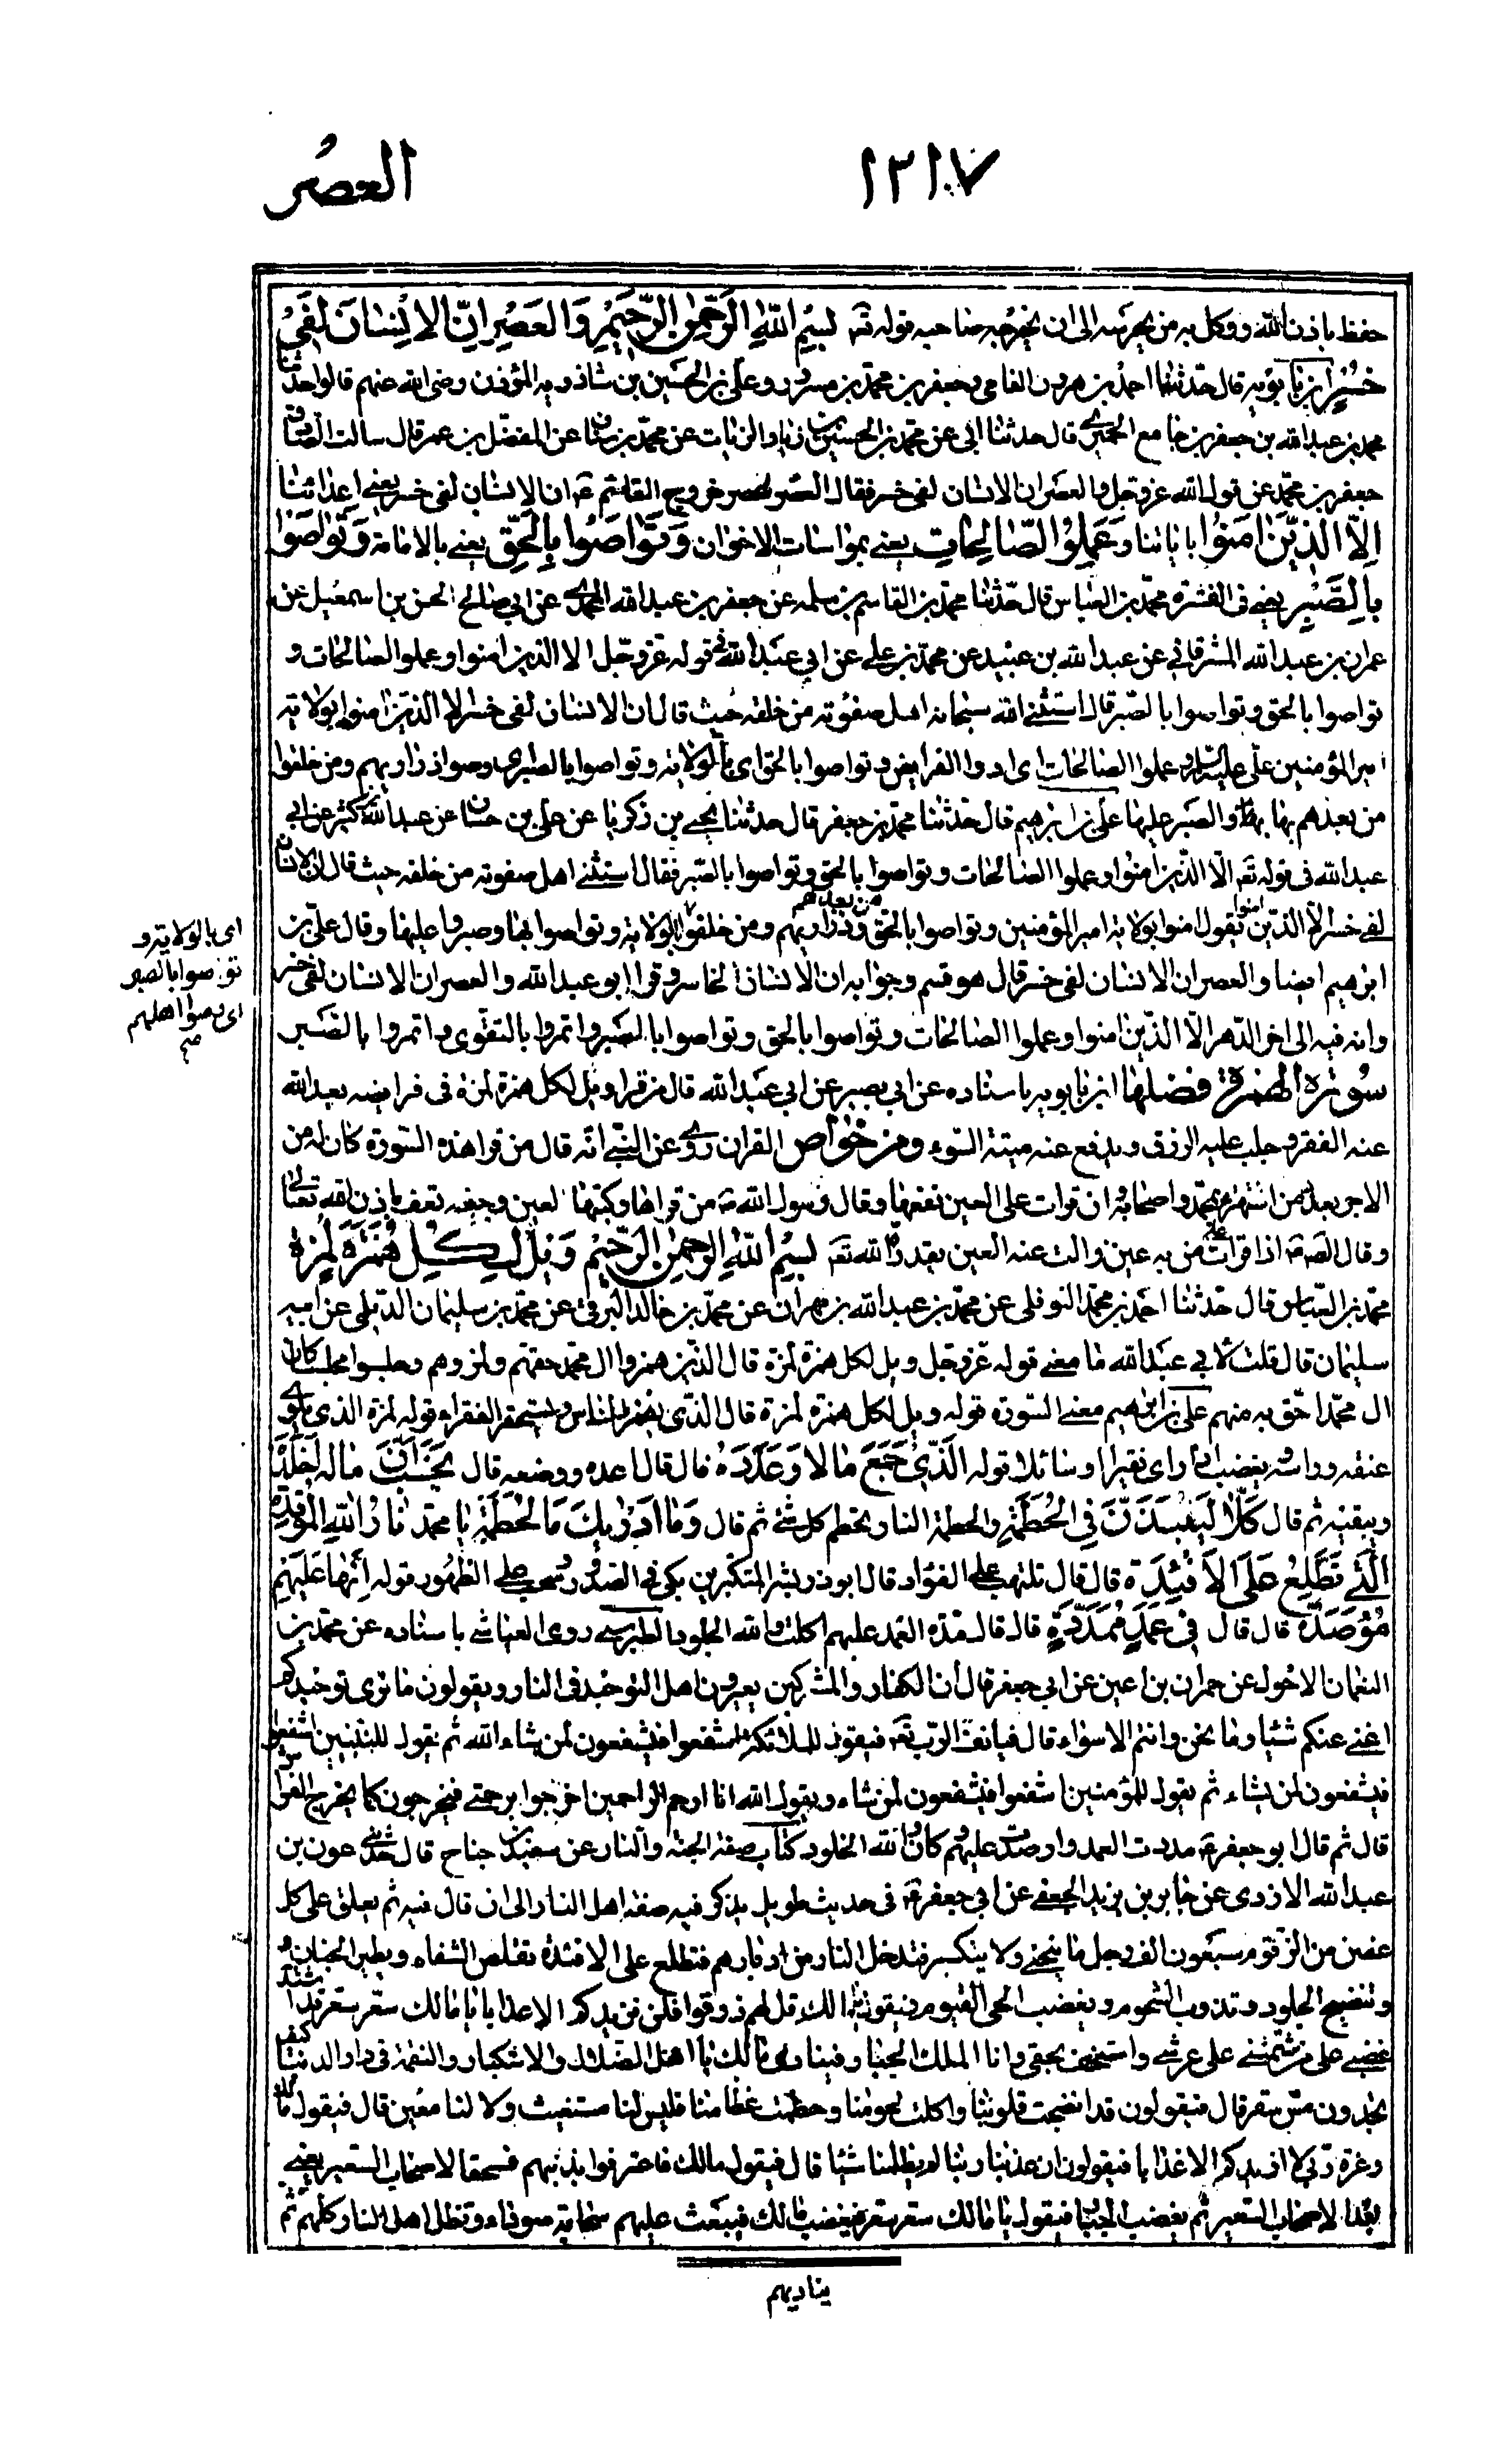 ١٢١٧
العصر
حفظ باذن الله ووكل به من يحرسه الى ان يخرجه صاحبه قوله تعـ بسم الله الرحمن الرحيم والعصر ان الانسان لفي
خسر ابن بابويه قال حدثنا احمد بن هرون الفامي وجعفر بن محمد بن مسرور وعلي بن الحسين بن شاذويه المؤذن رضى الله عنهم قالوا حدثنا
محمد بن عبد الله بن جعفر بن جامع الحميري قال حدثنا ابي عن محمد بن الحسين بن زياد الزيات عن محمد بن سنان عن المفضل بن عمر قال سالت الصادق
جعفر بن محمد عن قول الله عز وجل والعصر ان الانسان لفي خسر فقال العصر عصر خروج القائم عـ ان الانسان لفي خسر يعني اعدائنا
الا الذين امنوا باياتنا وعملوا الصالحات يعني بمواسات الاخوان وتواصوا بالحق يعني بالامامة وتواصوا
بالصبر يعني في الفترة محمد بن العباس قال حدثنا محمد بن القاسم بن سلمه عن جعفر بن عبد الله المحمدي عن ابي صالح الحسن بن اسمعيل عن
عمران بن عبد الله المشرقاني عن عبد الله بن عبيد عن محمد بن علي عن ابي عبد الله في قوله عز وجل الا الذين امنوا وعملوا الصالحات و
تواصوا بالحق وتواصوا بالصبر قال استثنى الله سبحانه اهل صفوته من خلقه حيث قال ان الانسان لفي خسر الا الذين امنوا بولاية
امير المؤمنين علي عليه السلام وعملوا الصالحات اى ادوا الفرايض وتواصوا بالحق اى بالولاية وتواصوا بالصبر اى وصوا ذراريهم ومن خلفوا
من بعدهم بها وبالصبر عليها علي بن ابرهيم قال حدثنا محمد بن جعفر قال حدثنا يحيى بن زكريا عن علي بن حسان عن عبد الرحمن بن كثير عن ابي
عبد الله في قوله تعـ الا الذين امنوا وعملوا الصالحات وتواصوا بالحق وتواصوا بالصبر فقال استثنى اهل صفوته من خلقه حيث قال ان الانسان
لفي خسر الا الذين امنوا يقول امنوا بولاية امير المؤمنين وتواصوا بالحق وذراريهم ومن خلفوا من بعدهم بالولاية وتواصوا بها وصبروا عليها وقال علي بن
اى بالولاية و
تواصوا بالصبر
اى وصوا اهلهم
صح
ابرهيم ايضا والعصر ان الانسان لفي خسر قال هو قسم وجوابه ان الانسان الخاسر وقرا ابو عبد الله والعصر ان الانسان لفي خسر
وانه فيه الى اخر الدهر الا الذين امنوا وعملوا الصالحات وتواصوا بالحق وتواصوا بالصبر واتمروا بالتقوى واتمروا بالصبر
سورة الهمزة فضلها ابن بابويه باسناده عن ابي بصير عن ابي عبد الله قال من قرا ويل لكل همزة لمزة في فرايضه بعد الله
عنه الفقر وجلب عليه الرزق ويدفع عنه ميتة السوء ومن خواص القران روي عن النبي انه قال من قرا هذه السورة كان له من
الاجر بعدد من استهزء بمحمد واصحابه وان قرات على العين نفعها وقال رسول الله صـ من قراها وكتبها لعين وجعه تعف باذن الله تعالى
وقال الصـ عـ اذا قرات على من به عين زالت عنه العين بقدرة الله تعـ بسم الله الرحمن الرحيم ويل لكل همزة لمزة
محمد بن العباس قال حدثنا احمد بن محمد النوفلي عن محمد بن عبد الله بن مهران عن محمد بن خالد البرقي عن محمد بن سليمان الديلمي عن ابيه
سليمان قال قلت لابي عبد الله ما معنى قوله عز وجل ويل لكل همزة لمزة قال الذين همزوا ال محمد حقهم ولمزوهم وجلسوا مجلسا كان
ال محمد احق به منهم علي بن ابرهيم معنى السورة قوله ويل لكل همزة لمزة قال الذي يغمز الناس ويستحقر الفقراء وقوله لمزة الذي يلوى
عنقه وراسه ويغضب اذا راى فقيرا او سائلا وقوله الذي جمع مالا وعدده قال قال اعده ووضعه قال يحسب ان ماله اخلده
ويبقيه ثم قال كلا لينبذن في الحطمة والحطمة النار يحطم كل شئ ثم قال وما ادريك ما الحطمة يا محمد نار الله الموقدة
التي تطلع على الافئدة قال قال تلتهب على الفؤاد قال ابوذر بشر المتكبرين بكي في الصدور وسحب على الظهور قوله انها عليهم
مؤصدة قال قال في عمد ممددة قال قال مدة العمد عليهم اكلت والله الجلود الطبرسي روى العياشي باسناده عن محمد بن
النعمان الاحول عن حمران بن اعين عن ابي جعفر قال ان الكفار والمشركين يعيرون اهل التوحيد في النار ويقولون ما نرى توحيدكم
اغنى عنكم شيئا وما نحن وانتم الا سواء قال فيانف الرب تعـ فيقول للملائكة اشفعوا فيشفعون لمن يشاء الله ثم يقول للنبيين اشفعوا
فيشفعون لمن يشاء ثم يقول للمؤمنين اشفعوا فيشفعون لمن شاء ويقول الله انا ارحم الراحمين اخرجوا برحمتي فيخرجون كما يخرج الفراش
قال ثم قال ابو جعفر عـ مدت العمد واوصدت عليهم وكان والله الخلود كتاب صفة الجنة والنار عن سعيد بن جناح قال حدثني عون بن
عبد الله الازدى عن جابر بن يزيد الجعفي عن ابي جعفر عـ في حديث طويل يذكر فيه صفة اهل النار الى ان قال فيه ثم يعلق على كل
غصن من الزقوم سبعون الف رجل ما ينحني ولا ينكسر فتدخل النار من ادبارهم فتطلع على الافئدة تقلص الشفاه ويطير الجنان و
وتنضج الجلود وتذوب الشحوم ويغضب الحي القيوم فيقول يا مالك قل لهم ذوقوا فلن نزيدكم الا عذابا يا مالك سعر سعر قد اشتد
غضبي على من شتمني على عرشي واستخف بحقي وانا الملك الجبار فينادى مالك يا اهل الضلال والاستكبار والنعمة في دار الدنيا كيف
تجدون مس سقر قال فيقولون قد انضجت قلوبنا واكلت لحومنا وحطمت عظامنا فليس لنا مستغيث ولا لنا معين قال فيقول مالك
وعزة ربي لا ازيدكم الا عذابا فيقولون ان عذبنا ربنا لم يظلمنا شيئا قال فيقول مالك فاعترفوا بذنبهم فسحقا لاصحاب السعير يعني
بعدا لاصحاب السعير ثم يغضب الجبار فيقول يا مالك سعر سعر فيغضب مالك فيبعث عليهم سحابة سوداء وتظل اهل النار كلهم ثم
يناديهم